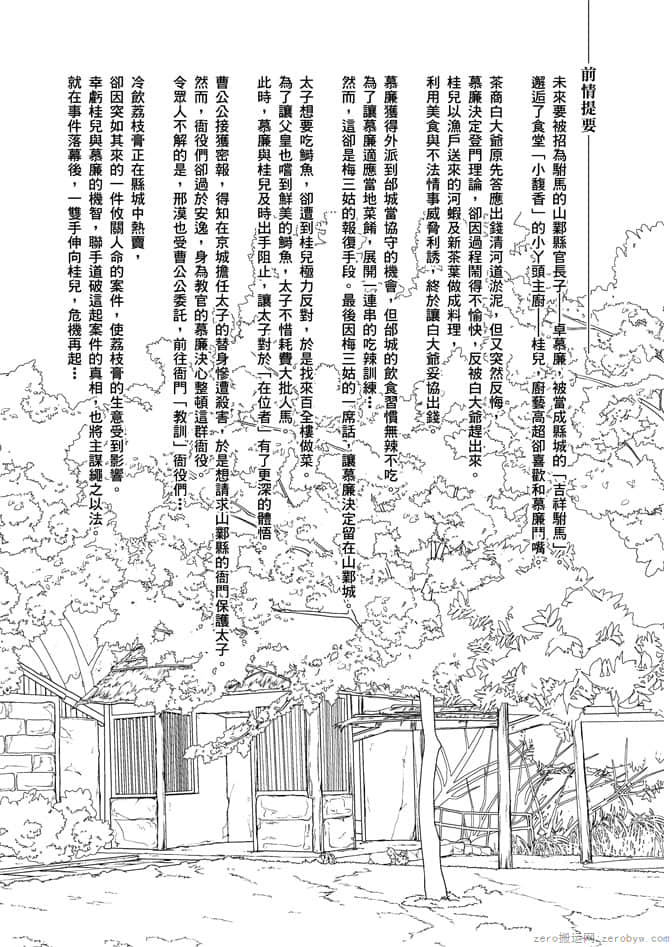 前情提要
未來要被招為駙馬的山鄴縣官長子——卓慕廉，被當成縣城的「吉祥駙馬」。
邂逅了食堂「小馥香」的小丫頭主廚——桂兒，廚藝高超卻喜歡和慕廉鬥嘴。
茶商白大爺原先答應出錢清河道淤泥，但又突然反悔，
慕廉決定登門理論，卻因過程鬧得不愉快，反被白大爺趕出來。
桂兒以漁戶送來的河蝦及新茶葉做成料理，
利用美食與不法情事威脅利誘，終於讓白大爺妥協出錢。
慕廉獲得外派到邰城當協守的機會，但邰城的飲食習慣無辣不吃。
為了讓慕廉適應當地菜餚，展開一連串的吃辣訓練…
然而，這卻是梅三姑的報復手段。最後因梅三姑的一席話，讓慕廉決定留在山鄴城。
太子想要吃鰣魚，卻遭到桂兒極力反對，於是找來百全樓做菜。
為了讓父皇也嚐到鮮美的鰣魚，太子不惜耗費大批人馬。
此時，慕廉與桂兒及時出手阻止，讓太子對於「在位者」有了更深的體悟。
曹公公接獲密報，得知在京城擔任太子的替身慘遭殺害，於是想請求山鄴縣的衙門保護太子。
然而，衙役們卻過於安逸，身為教官的慕廉決心整頓這群衙役。
令眾人不解的是，邢漠也受曹公公委託，前往衙門「教訓」衙役們…
冷飲荔枝膏正在縣城中熱賣，
卻因突如其來的一件攸關人命的案件，使荔枝膏的生意受到影響。
幸虧桂兒與慕廉的機智，聯手道破這起案件的真相，也將主謀繩之以法。
就在事件落幕後，一雙手伸向桂兒，危機再起…
zero搬运网:zerobyw.com